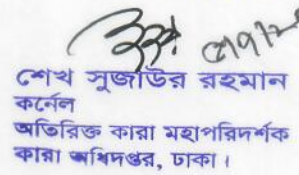 শেখ সুজাউর রহমান
কর্নেল
অতিরিক্ত কারা মহাপরিদর্শক
কারা অধিদপ্তর, ঢাকা।